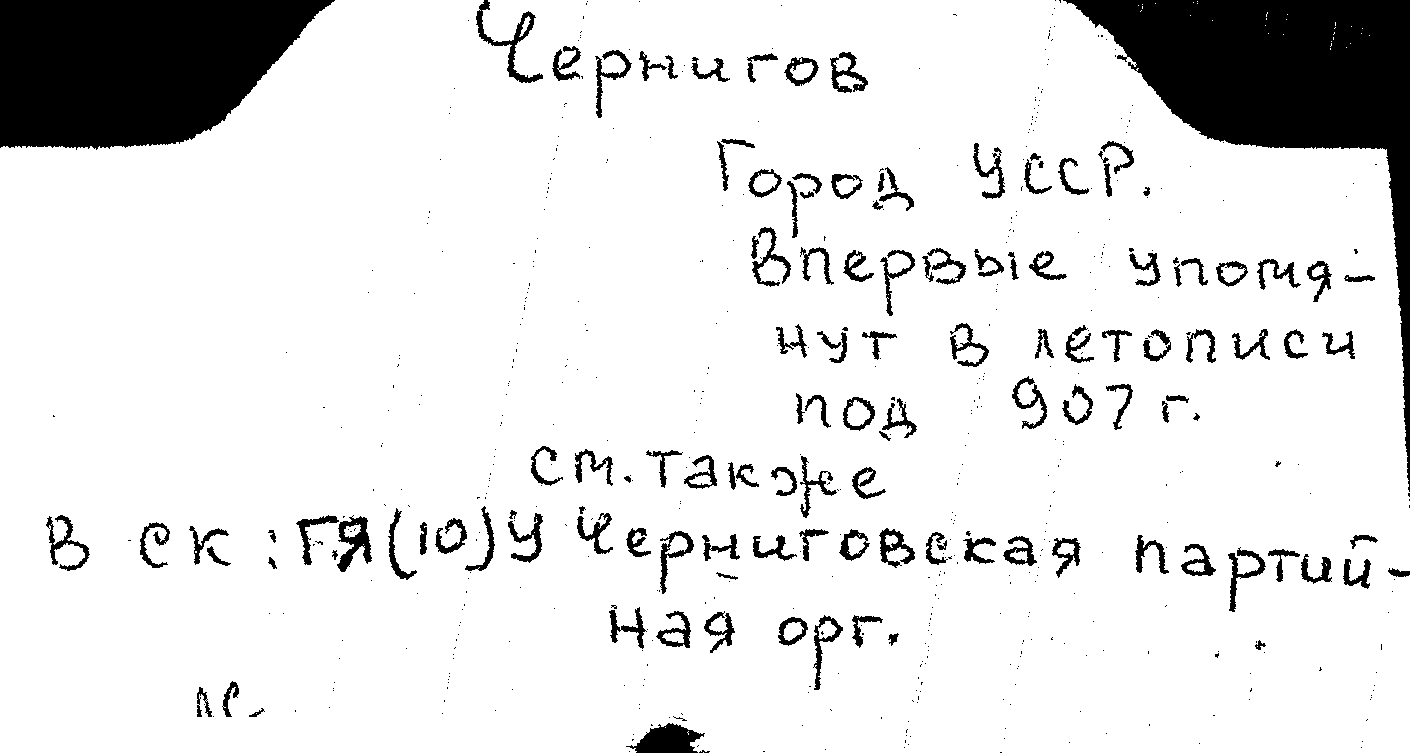 Чернигов
Город УССР.
Впервые упомя-
нут в летописи
под 907 г.
см. также
В СК: ГЯ(10)У Черниговская партий-
ная орг.